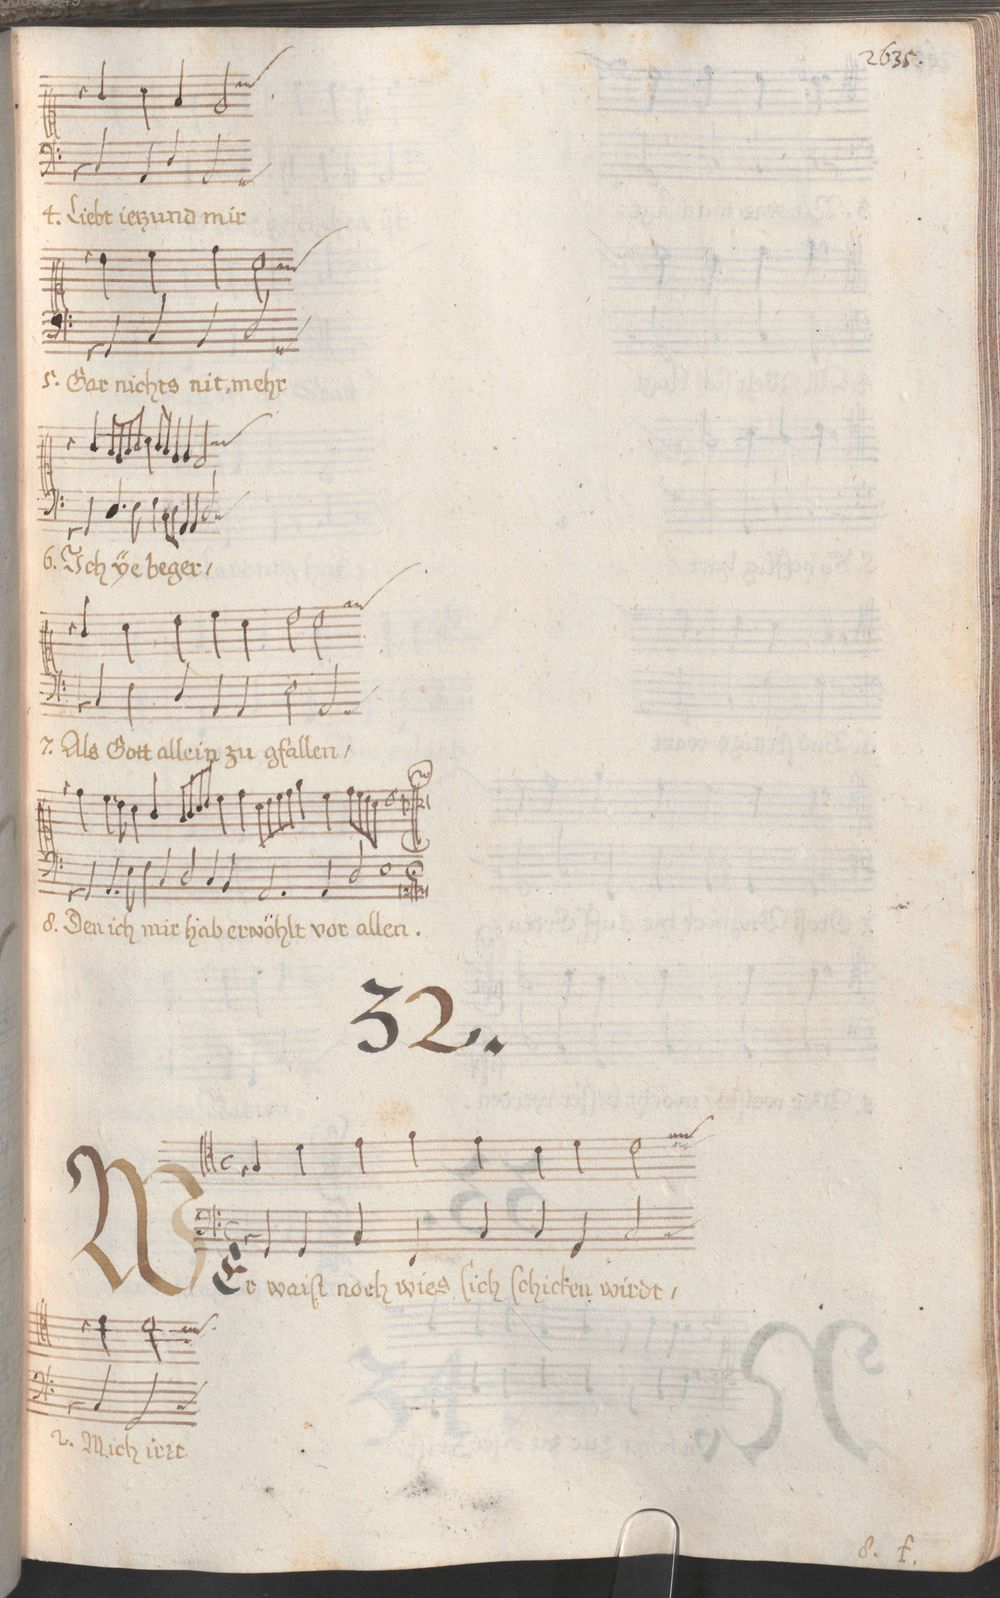 2635.
4. Liebt ietzund mir
5. Gar nichts nit mehr
6. Ich ÿe beger/
7. Als Gott allein zu gfallen/
8. Den ich mir hab erwöhlt vor allen.
32.
WEr waist noch wies sich schicken wirdt/
2. Mich irrt
8. f.